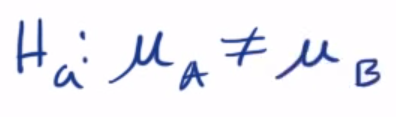 Hₐ: μ_A ≠ μ_B